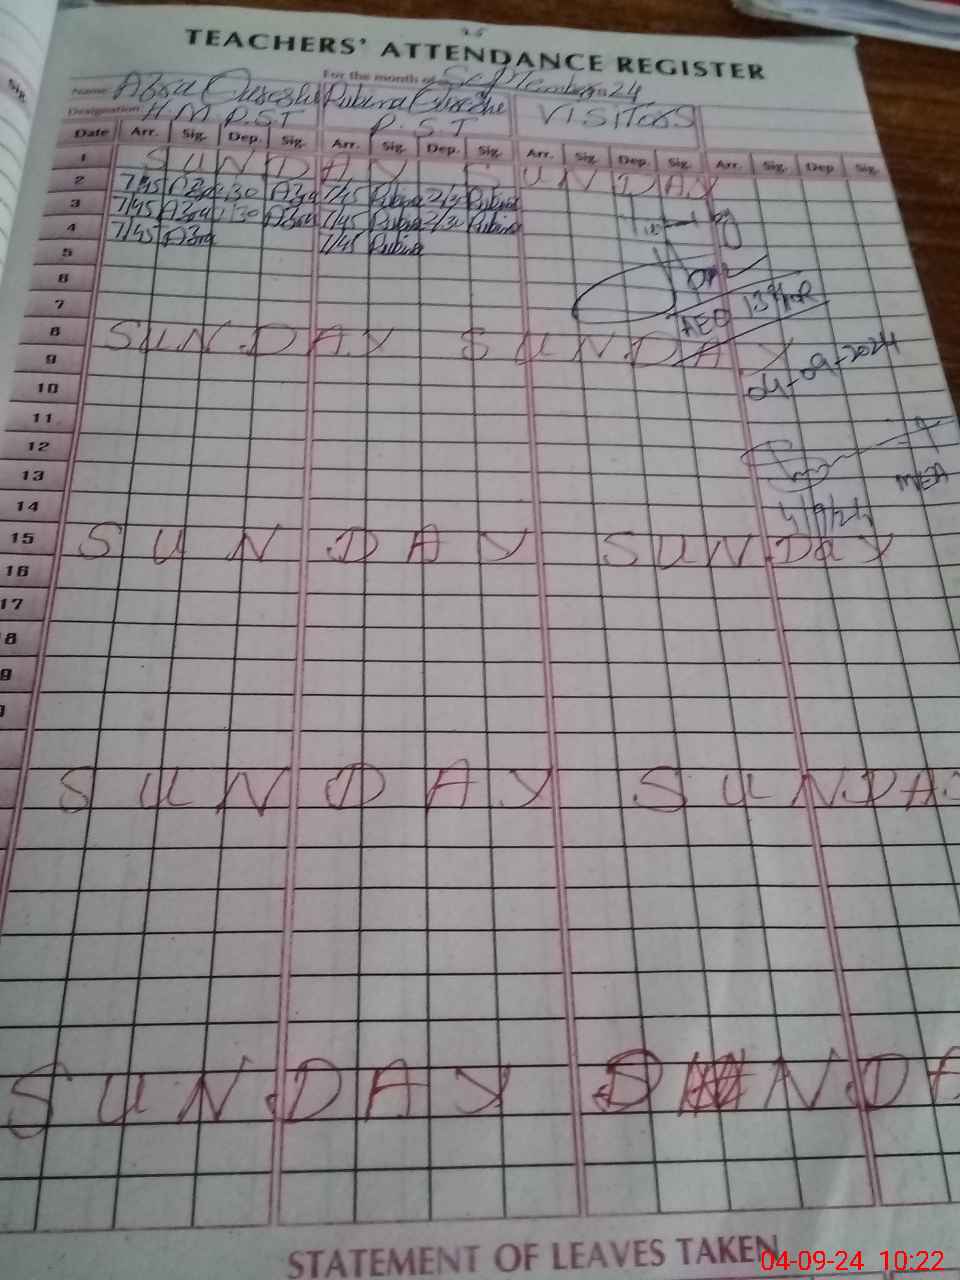 TEACHERS' ATTENDANCE REGISTER
For the month of September 24
Name Azra Rubina VISITORS
Designation H M P.S.T P.S.T
Date Arr. Sig. Dep. Sig. Arr. Sig. Dep. Sig. Arr. Sig. Dep. Sig. Arr. Sig. Dep Sig.
1 SUNDAY SUNDAY
2 7/45 Azra 1/30 Azra 7/45 Rubina 2/30 Rubina
3 7/45 Azra 1/30 Azra 7/45 Rubina 2/30 Rubina
4 7/45 Azra 7/45 Rubina
5
6
7
AEO
8 SUNDAY SUNDAY
9
04-09-2024
10
11
12
13
MEA
14
4/9/24
15 SUNDAY SUNDAY
16
17
8
9
SUNDAY SUNDA
SUNDAY SUNDA
STATEMENT OF LEAVES TAKEN
04-09-24 10:22